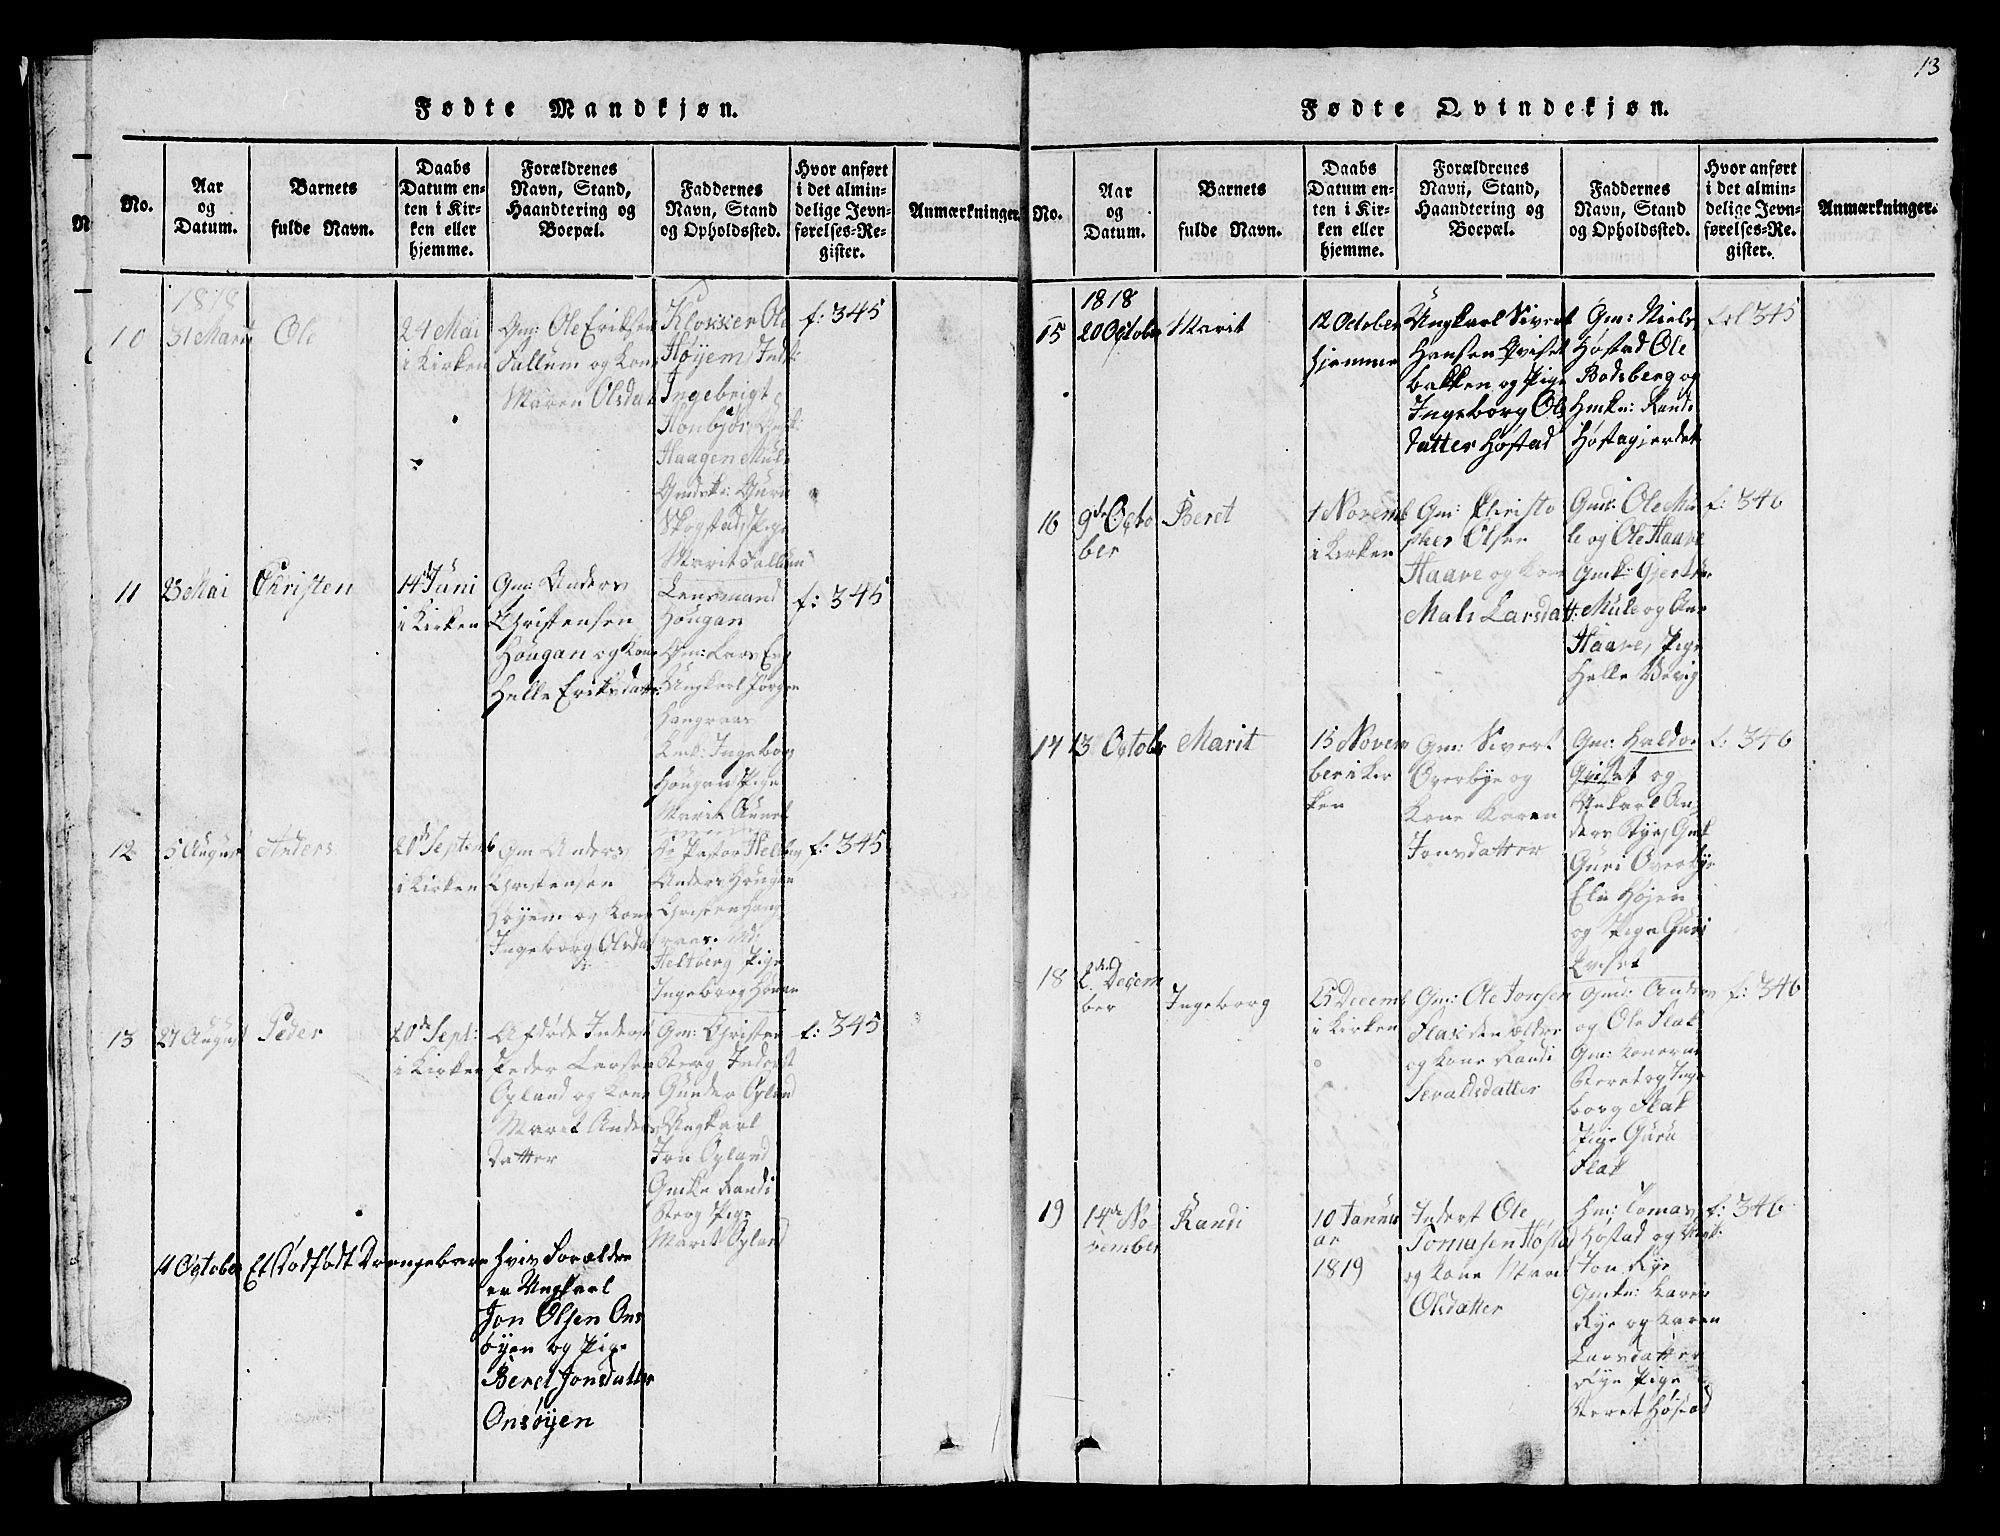 13
Fødte Mandkjøn.
No.
Aar
og
Datum.
Barnets
fulde Navn.
Daabs
Datum en-
ten i Kir-
ken eller
hjemme.
Forældrenes
Navn, Stand,
Haandtering og
Boepæl.
Faddernes
Navn, Stand
og Opholdssted.
Hvor anført
i det almin-
delige Jevn-
førelses-Re-
gister.
Anmærkninger.
1818
10
31 Marti
Ole
24 Mai
i Kirken
Gm: Ole Eriksen
Fallum og Kone
Maren Olsdat
Klokker Ole
Høyem, Inds:
Ingebrigt
Haagen Mule
Guri
Skogstad, Pige
Marit Fallum
f: 345
11
23 Mai
Christen
14 Juni
i Kirken
Gm: Anders
Christensen
Hougan og Kone
Helle Eriksdatter
Lensmand
Hougan
Gm: Lars
Ungkarl Jørgen
Hangraas
Ingeborg
Hougan Pige
Marit Aunet
f: 345
12
5 August
Anders
20de Septemb
i Kirken
Gm Anders
Christensen
Høyem og Kone
Ingeborg Olsdat
Hr Pastor Heltberg
Anders Hougan
Christen Hang
raas. Md:
Heltberg Pige
Ingeborg
f: 345
13
27 August
Peder
20de Sept:
i Kirken
Afdøde Inderst
Peder Larsen
Øyland og Kone
Maret Anders
Datter
Gm: Christen
Berg Inderst
Gunder Øyland
Ungkarl
Jon Øyland
Gmke Randi
Berg Pige
Marit Øyland
f: 345
11 October
Et Dødfødt Drengebarn
hvis Forældre
er Ungkarl
Jon Olsen Ons
øyen og Pige
Beret Jonsdatter
Onsøyen
Fødte Qvindekjøn.
No.
Aar
og
Datum.
Barnets
fulde Navn.
Daabs
Datum en-
ten i Kir-
ken eller
hjemme.
Forældrenes
Navn, Stand,
Haandtering og
Boepæl.
Faddernes
Navn, Stand
og Opholdssted.
Hvor anført
i det almin-
delige Jevn-
førelses-Re-
gister.
Anmærkninger.
1818
15
20 October
Marit
12 October
hjemme
Ungkarl Sivert
Hansen Qviset
bakken og Pige
Ingeborg Ols
datter Høstad
Gm: Niels
Høstad Ole
Bodsberg og
Hmkn: Randi
Høstagjerdet
fol 345
16
9de Octo
ber
Beret
1 Novemb
i Kirken
Gm: Christo
pher Olsen
Haave og Kone
Mali Larsdatt:
Gmd: Ole Mu
le og Ole Haave
Gmk: Gjertrue
Mule og Ane
Haave, Pige
Helle
f: 346
17
13 October
Marit
15 Novem
ber i Kir
ken
Gm: Sivert
Overbye og
Kone Karen
Jonsdatter
Gm: Haldor
Qviset og
Unkarl An
ders Bye, Gmk
Guri Overbye
Eli Højen
og Pige Guri
Qviset
f: 346
18
2den Decem
ber
Ingeborg
25 Decemb
i Kirken
Gm: Ole Jonsen
Flak den ældre
og Kone Randi
Sevaldsdatter
Gmd: Anders
og Ole Flak
Gm: Konerne
Beret og Inge
borg Flak
Pige Guru
Flak
f: 346
19
14de No
vember
Randi
10 Januu
ar
1819
Inderst Ole
Tomasen Høstad
og Kone Marit
Olsdatter
Hm: Tomas
Høstad og Ungk:
Jon Rye
Gmkn: Karen
Rye og Karen
Larsdatter
Rye Pige
Beret Høstad
f: 346